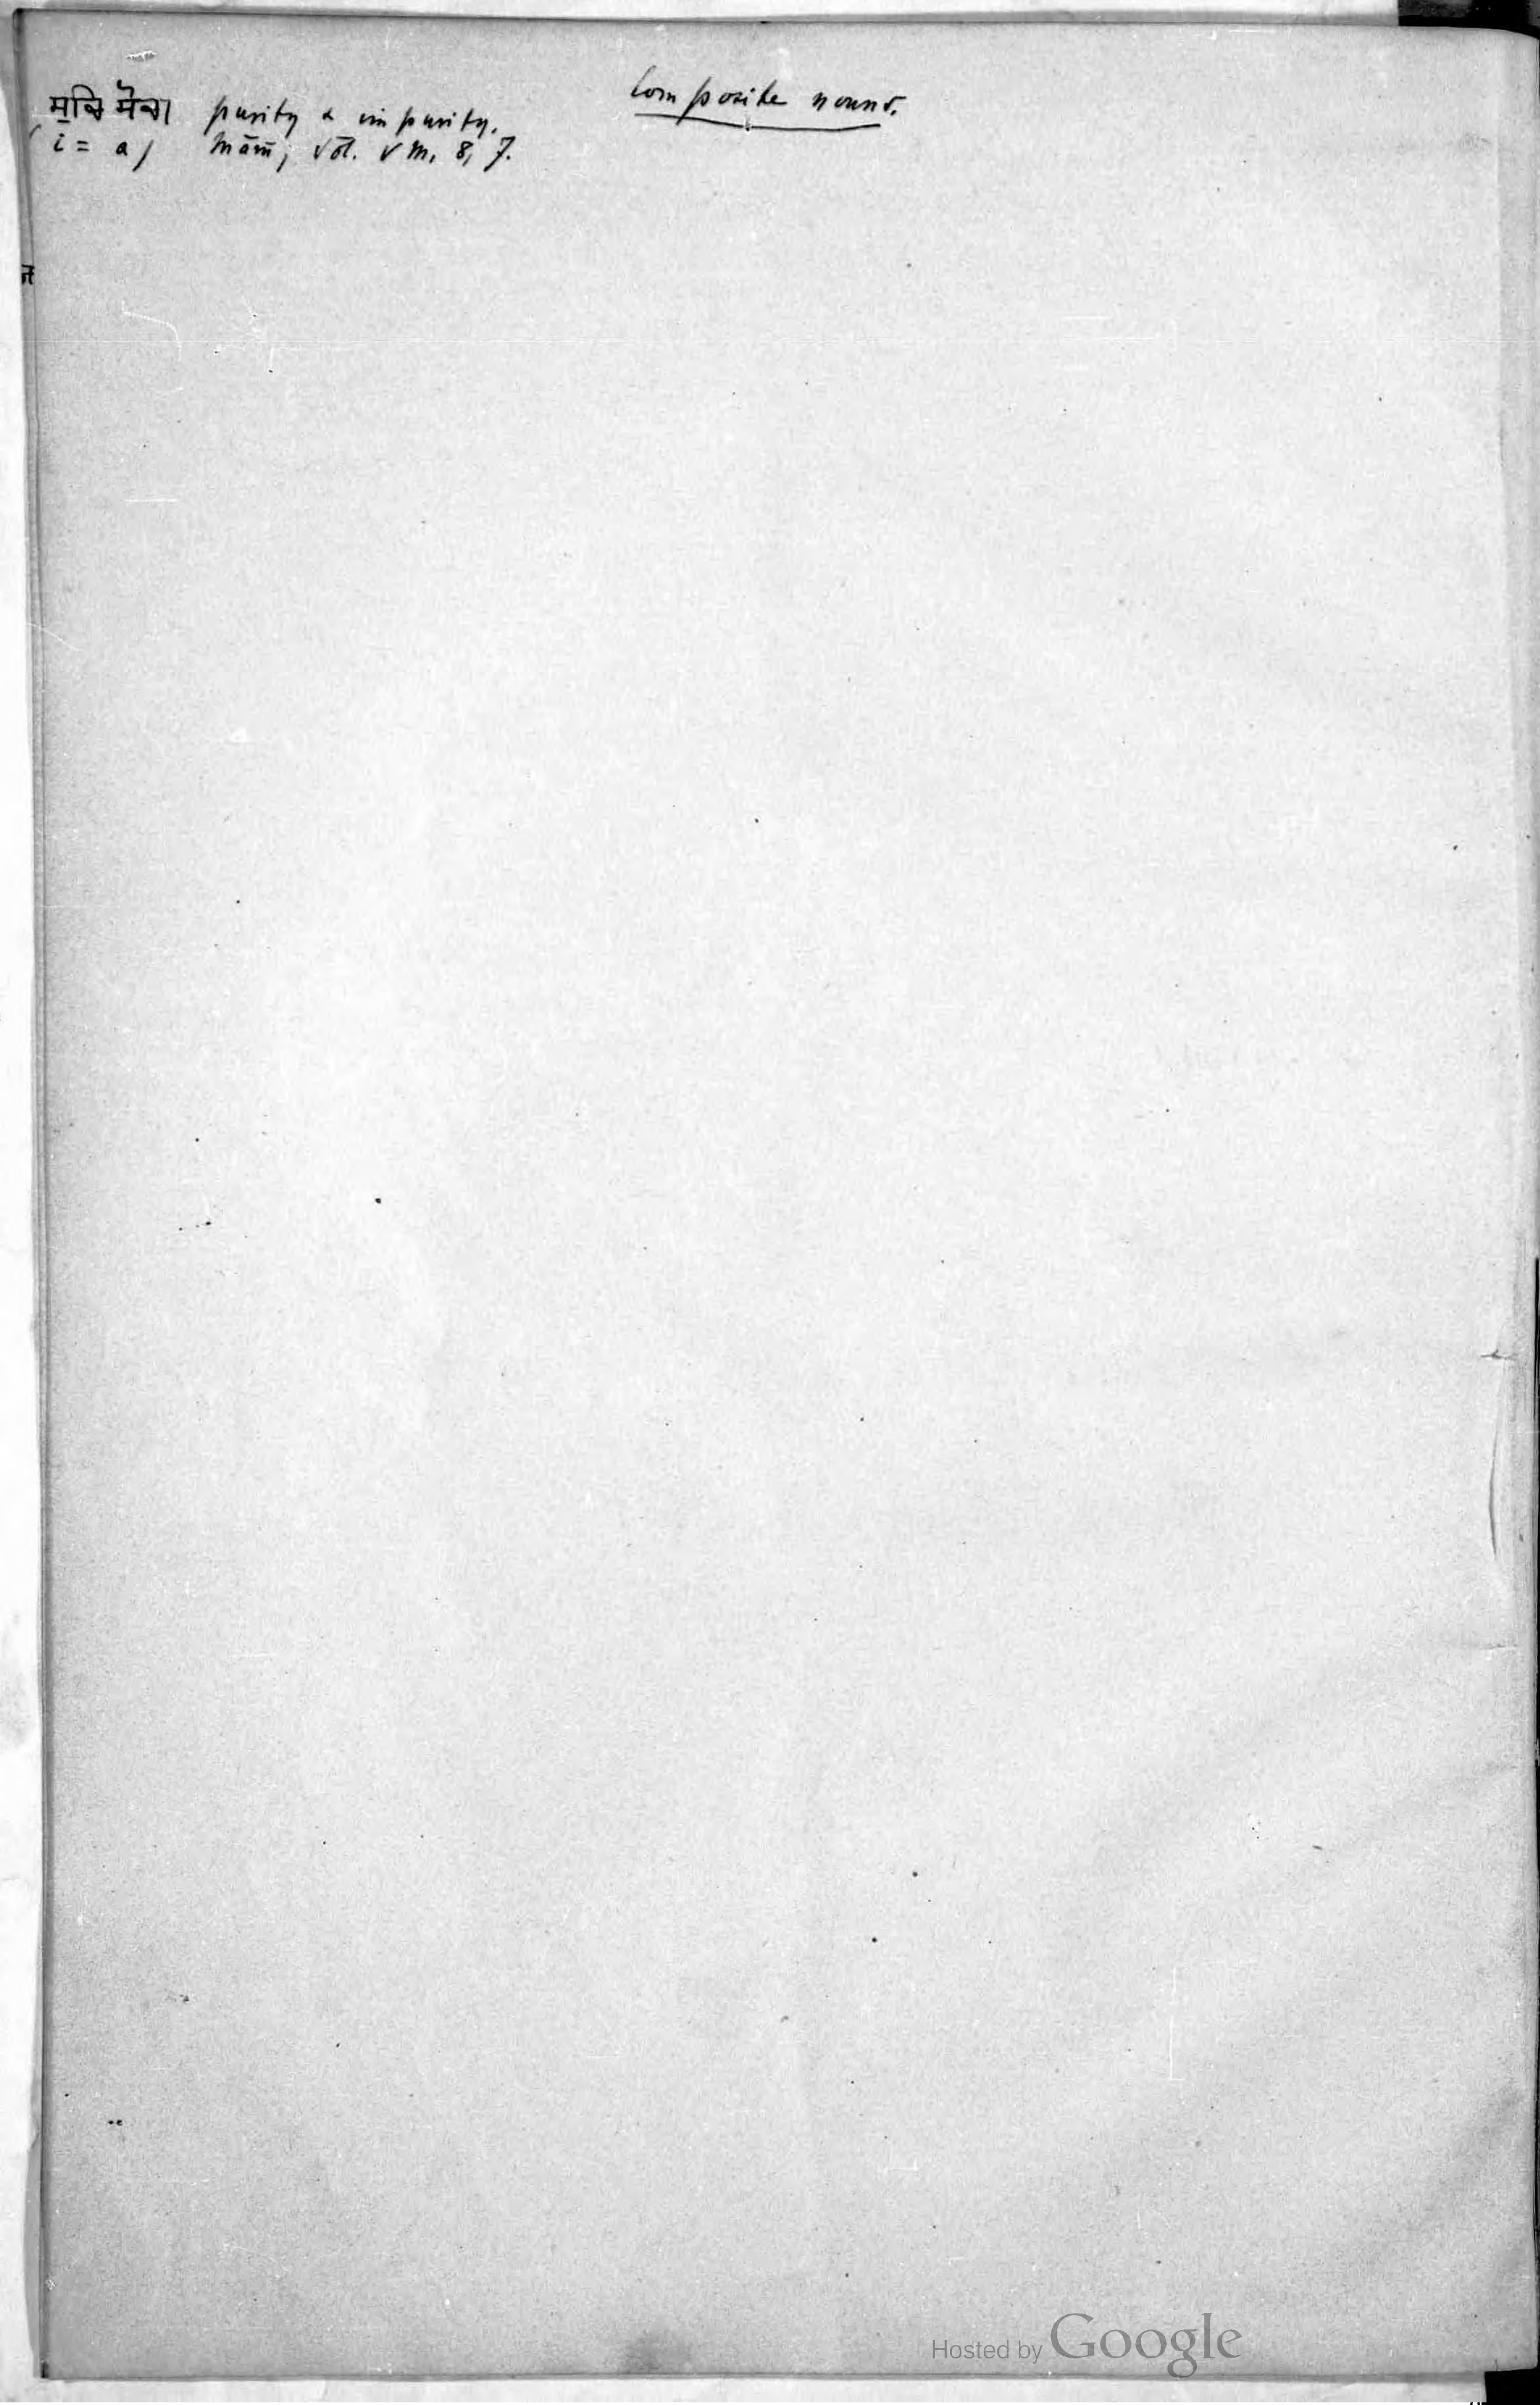 Composite nouns.
ਸੁਚਿ ਸੋਚਾ purity & impurity.
(i = a) Mām; Vol. VM, 8, 7.
Hosted by Google